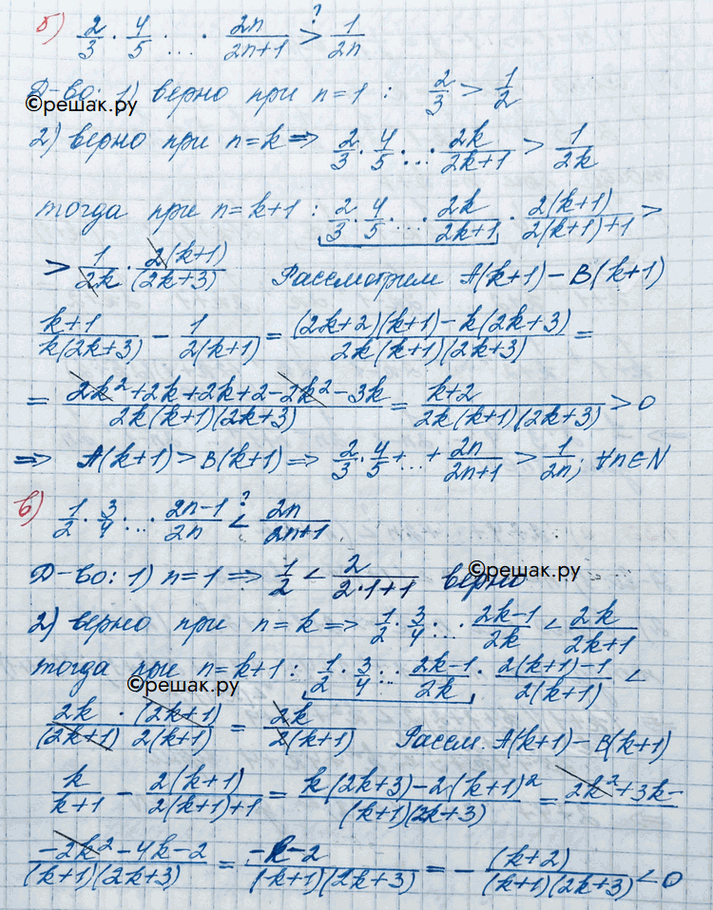 б) 2/3 · 4/5 ... · 2n/(2n+1) >? 1/2n
Д-во: 1) верно при n=1 : 2/3 > 1/2
©решак.ру
2) верно при n=k ⇒ 2/3 · 4/5 ... · 2k/(2k+1) > 1/2k
тогда при n=k+1 : 2/3 · 4/5 ... · 2k/(2k+1) · 2(k+1)/(2(k+1)+1) >
> 1/2k · 2(k+1)/(2k+3) Рассмотрим A(k+1) − B(k+1)
(k+1)/(k(2k+3)) − 1/(2(k+1)) = ((2k+2)(k+1)−k(2k+3))/(2k(k+1)(2k+3)) =
= (2k²+2k+2k+2−2k²−3k)/(2k(k+1)(2k+3)) = (k+2)/(2k(k+1)(2k+3)) > 0
⇒ A(k+1) > B(k+1) ⇒ 2/3 · 4/5 + ... + 2n/(2n+1) > 1/2n; ∀n∈N
в) 1/2 · 3/4 ... · (2n−1)/2n <? 2n/(2n+1)
Д-во: 1) n=1 ⇒ 1/2 < 2/(2·1+1) верно
©решак.ру
2) верно при n=k ⇒ 1/2 · 3/4 ... · (2k−1)/2k < 2k/(2k+1)
тогда при n=k+1 : 1/2 · 3/4 ... · (2k−1)/2k · (2(k+1)−1)/(2(k+1)) <
©решак.ру
2k/(2k+1) · (2k+1)/(2(k+1)) = 2k/(2(k+1)) Рассм. A(k+1) − B(k+1)
k/(k+1) − 2(k+1)/(2(k+1)+1) = (k(2k+3)−2(k+1)²)/((k+1)(2k+3)) = 2k²+3k−
(−2k²−4k−2)/((k+1)(2k+3)) = (−k−2)/((k+1)(2k+3)) = − (k+2)/((k+1)(2k+3)) < 0